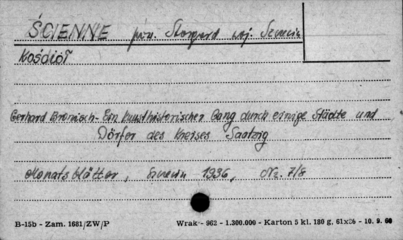 ŚCIENNE pow. Stargard woj. Szczecin
Kościół
Gerhard Bronisch - Ein kunsthistorischer Gang durch einige Städte und
Dörfer des Kreises Saatzig
Monatsblätter, Szczecin 1936, Nr. 7/8
B-15b - Zam. 1681/ZW/P Wrak - 962 - 1.300.000 - Karton 5 kl. 180 g, 61x26 - 10. 9. 60